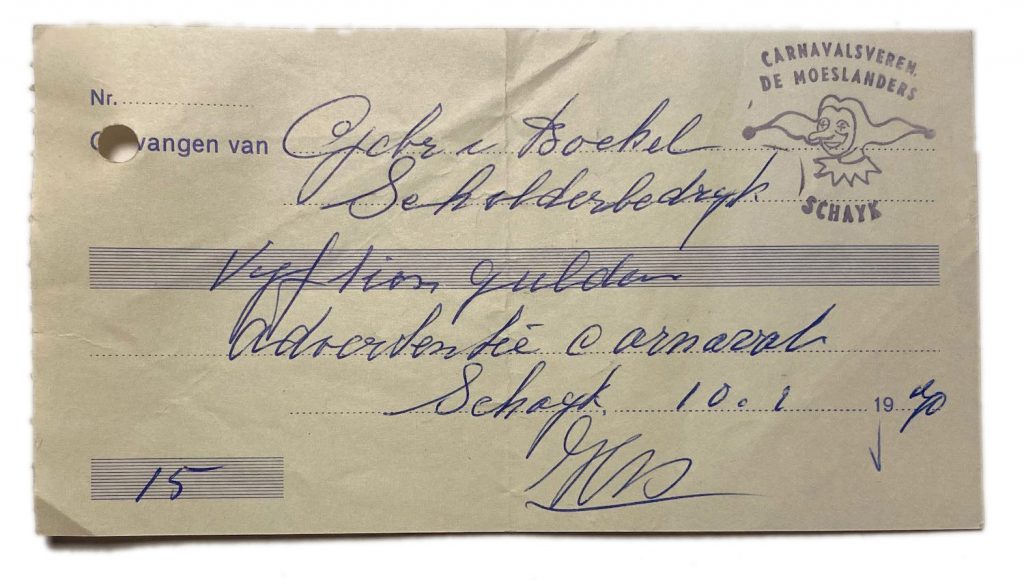 CARNAVALSVEREN.
DE MOESLANDERS
SCHAYK
Nr.
vangen van Gebr v Boekel
Schilderbedryf
Vyftien gulden
advertentie carnaval
Schayk, 10.1 1970
15